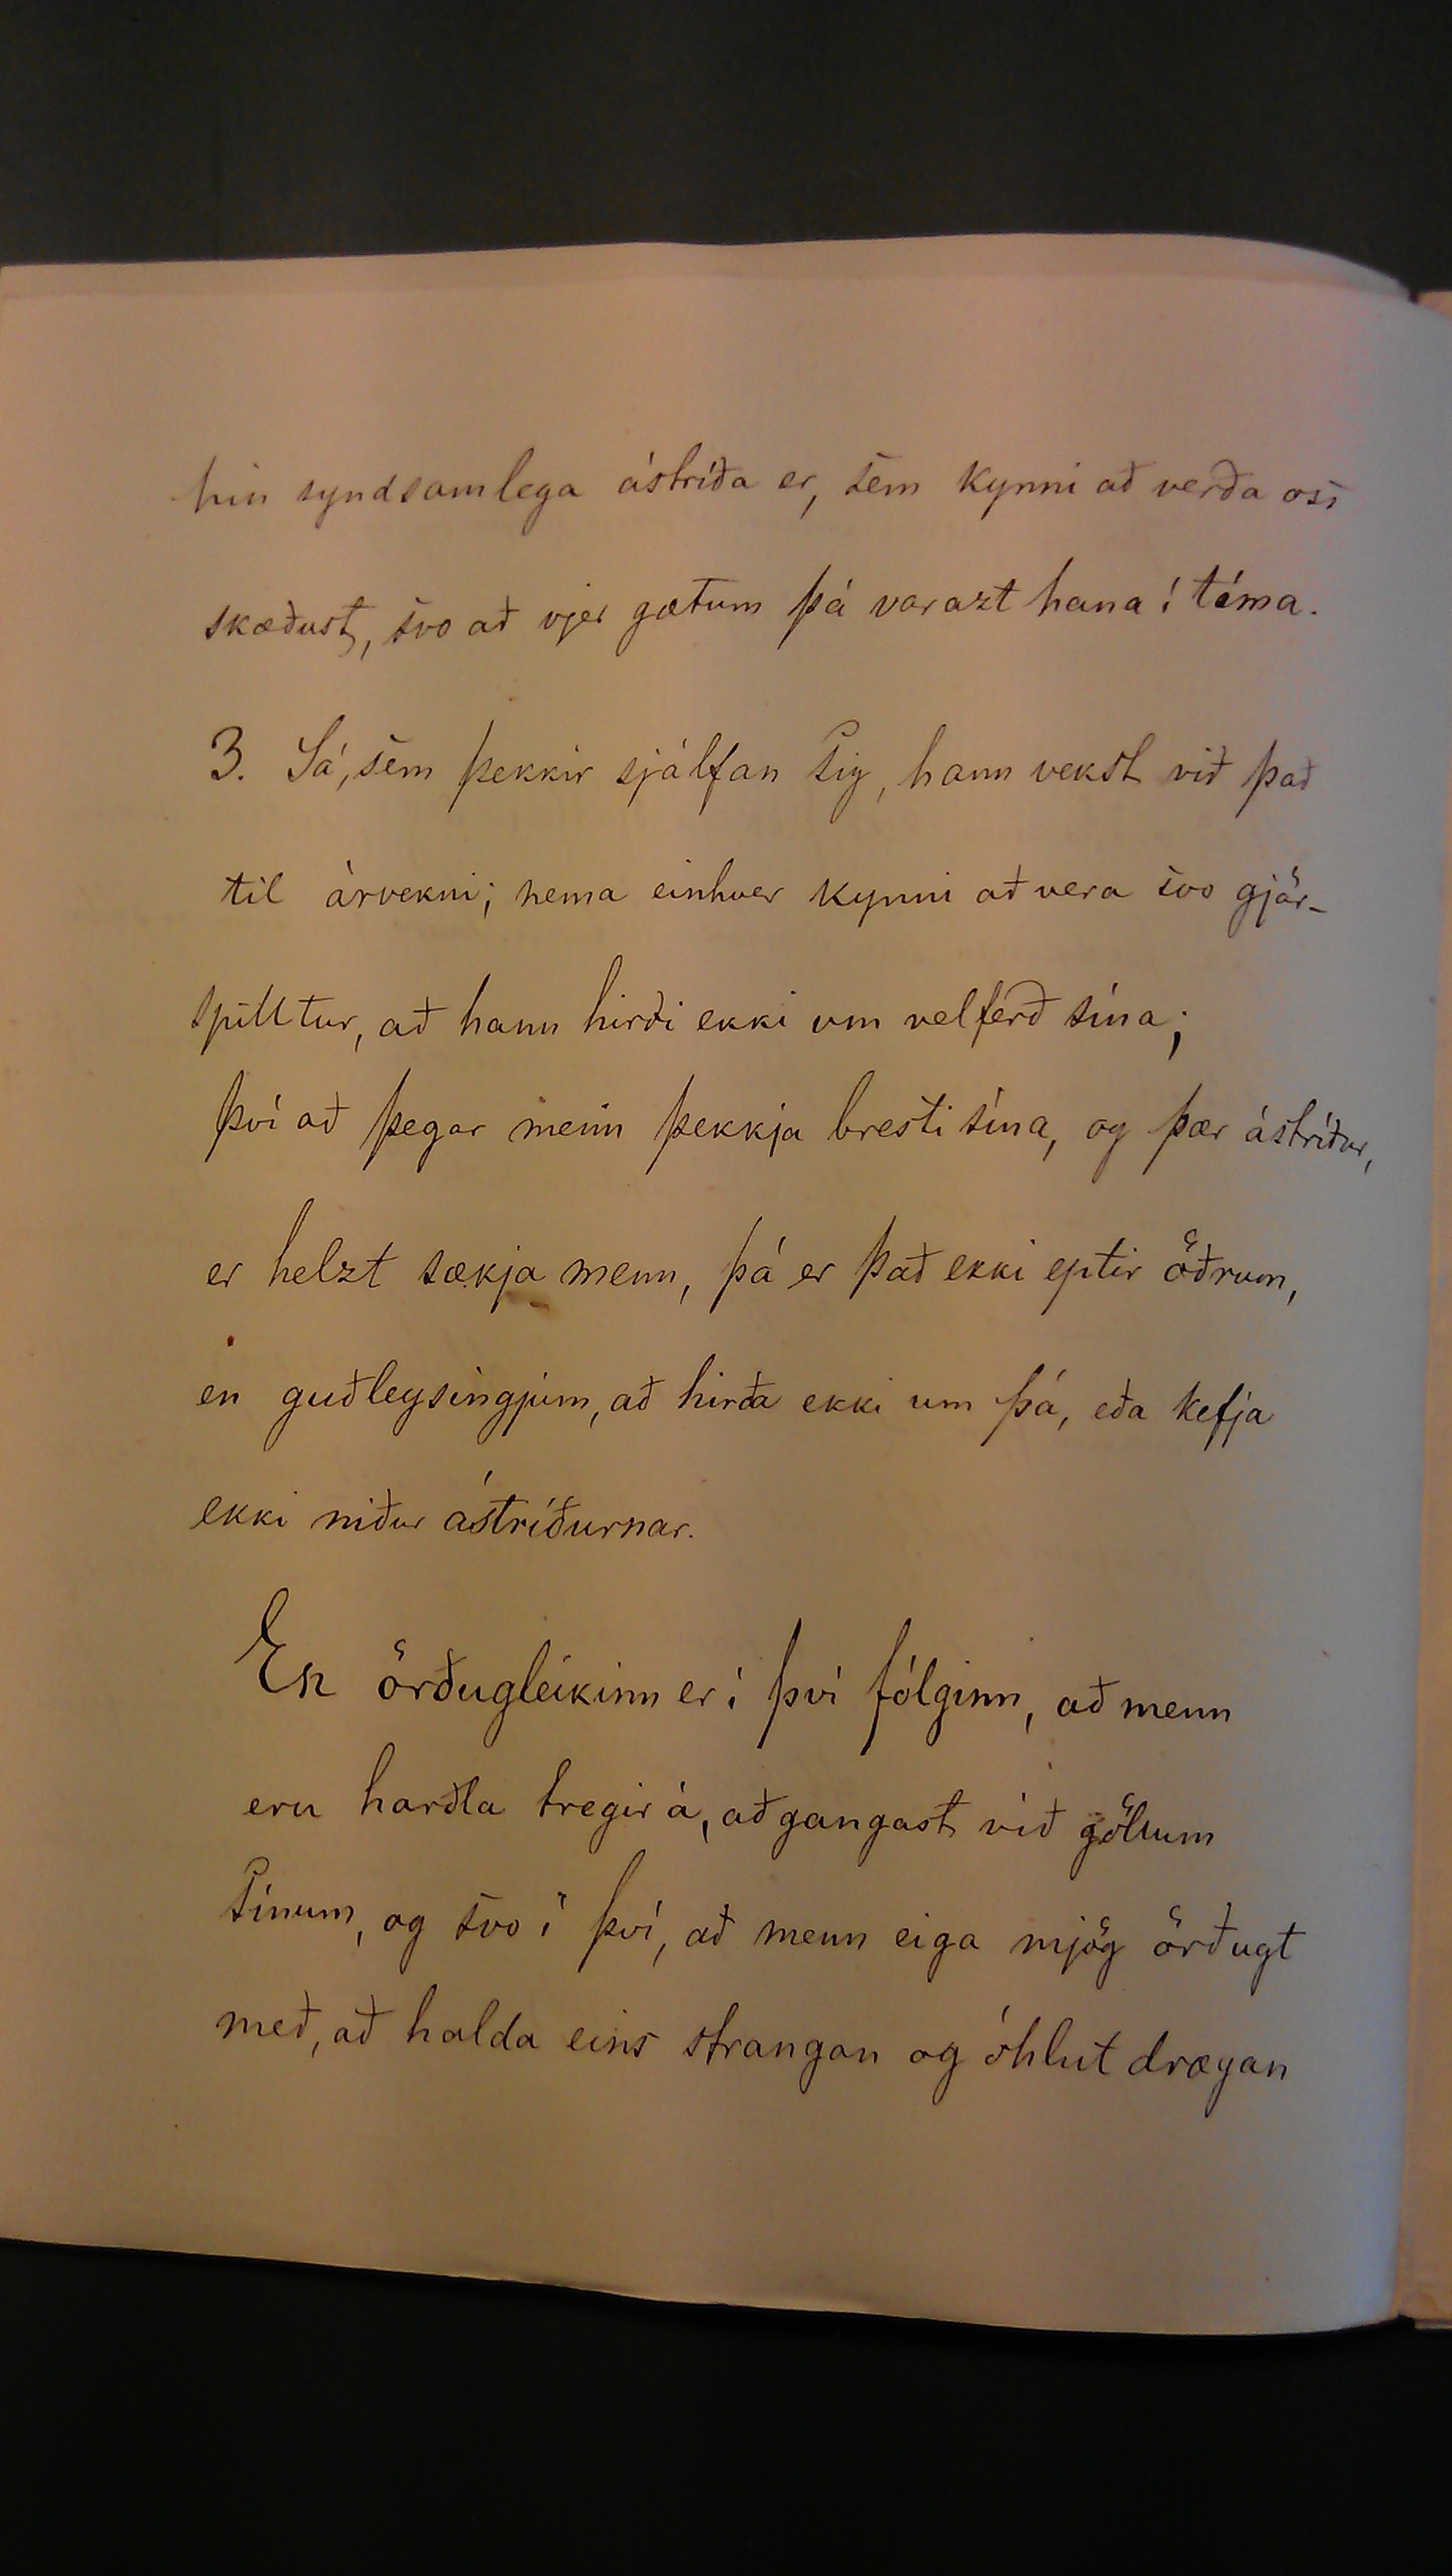 hin syndsamlega ástríða er, sem kynni að verða oss
skæðust, svo að vjer gætum þá varazt hana í tíma.
3. Sá, sem þekkir sjálfan sig, hann vekst við það
til árvekni; nema einhver kynni að vera svo gjör-
spilltur, að hann hirði ekki um velferð sína;
því að þegar menn þekkja bresti sína, og þær ástríður,
er helzt sækja menn, þá er það ekki eptir öðrum,
en guðleysingjum, að hirða ekki um þá, eða kefja
ekki niður ástríðurnar.
En örðugleikinn er í því fólginn, að menn
eru harðla tregir á, að gangast við göllum
sínum, og svo í því, að menn eiga mjög örðugt
með, að halda eins strangan og óhlutdrægan